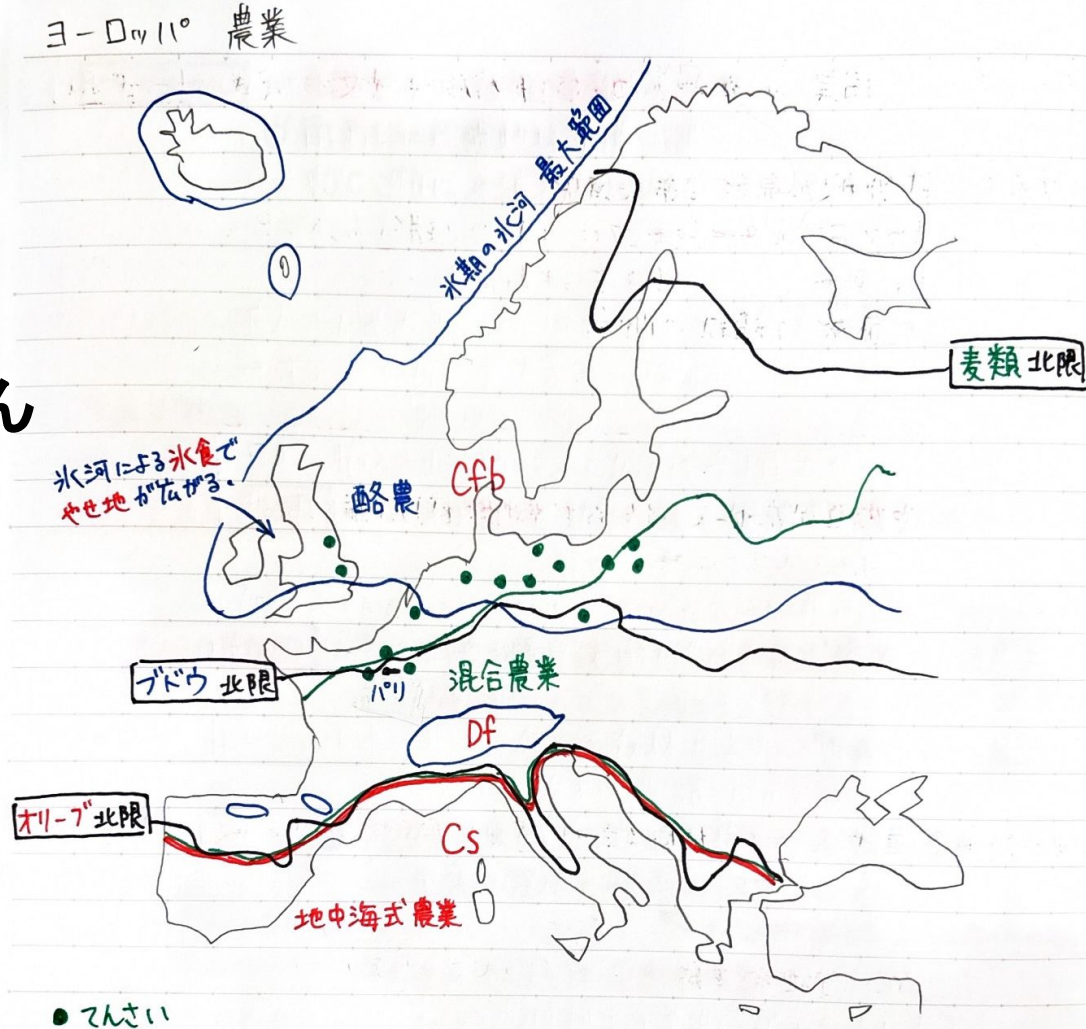 ヨーロッパ 農業
氷期の氷河 最大範囲
麦類 北限
ん
氷河による氷食で
やせ地が広がる.
酪農
Cfb
ブドウ 北限
パリ
混合農業
Df
オリーブ 北限
Cs
地中海式農業
● てんさい